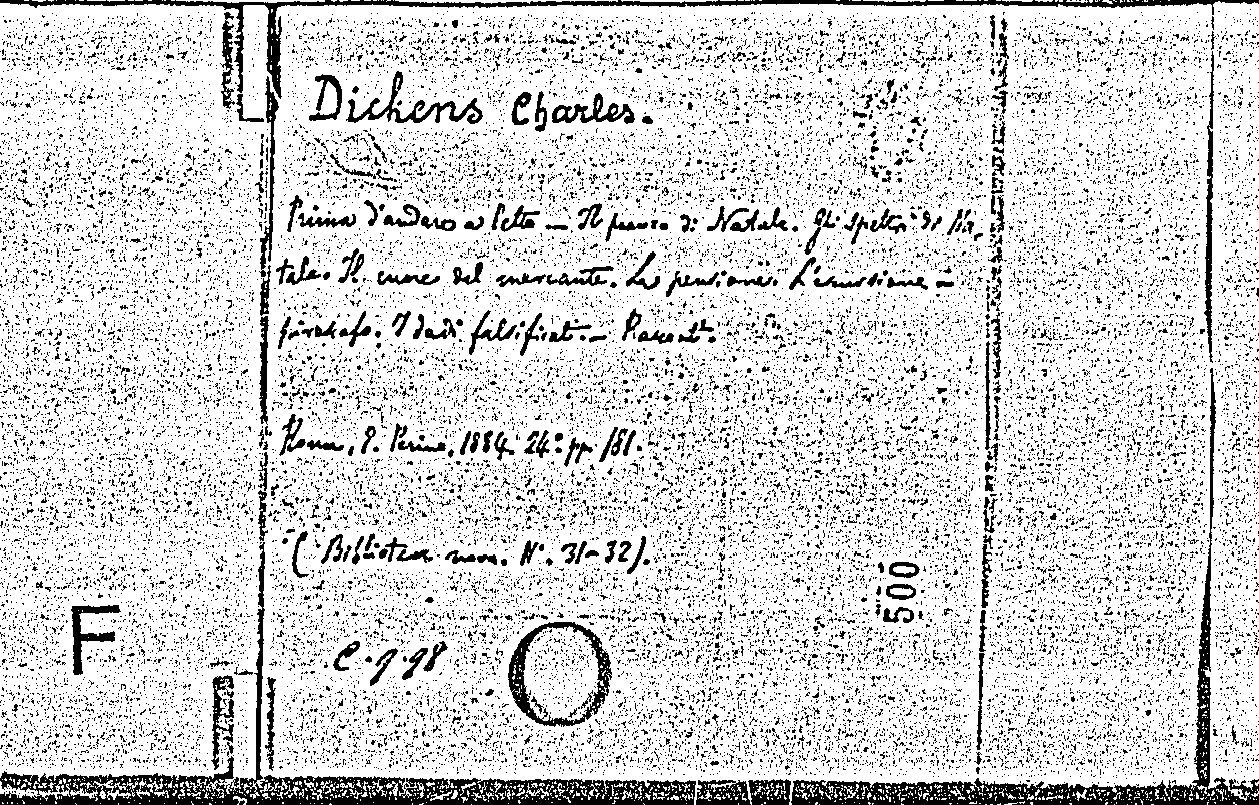 Dickens Charles.
Prima d'andare a letto — Il pranzo di Natale. Gli spettri di Na-
tale. Il cuore del mercante. La pensione. L'escursione in
piroscafo. I dadi falsificati. — Raccont.
Roma, E. Perino, 1884. 24° pp. 181.
(Biblioteca nova. N°. 31-32).
500
F
C.9.98